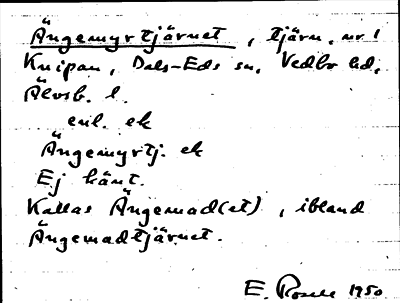 Ängemyrtjärnet, tjärn, nr 1
Knipan, Dals-Eds sn, Vedbo hd,
Älvsb. l.
enl. ek
Ängemyrtj. ek
Ej känt.
Kallas Ängemad(et), ibland
Ängemadtjärnet.
E. Rosell 1950